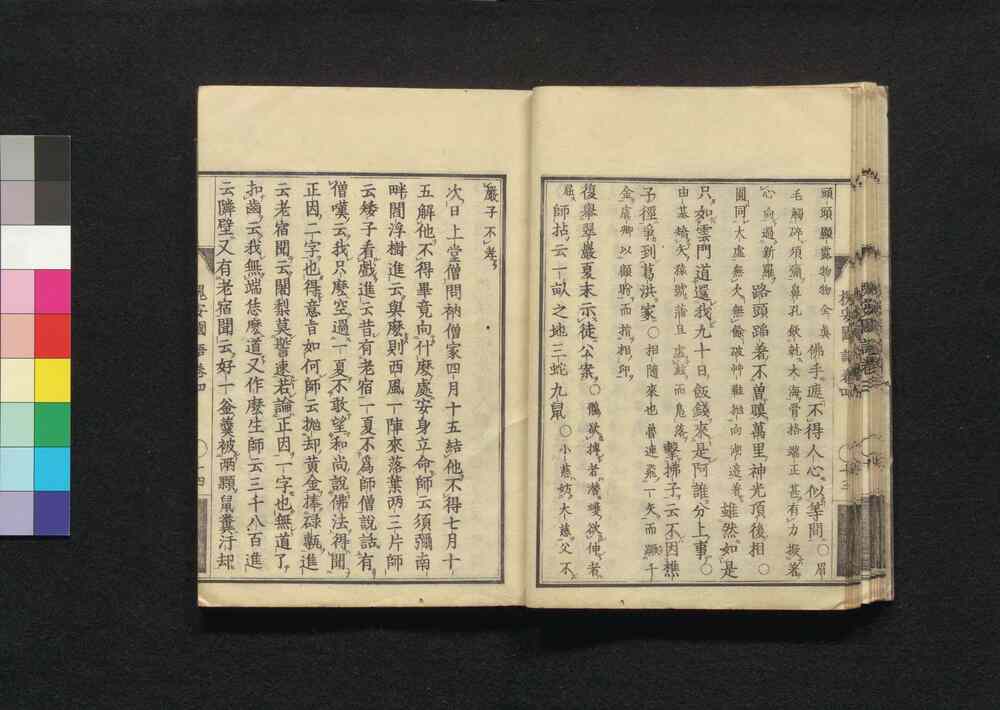 頭頭顯露物物全眞佛手遮不得人心似等閒○眉
毛觸碎須彌鼻孔飮乾大海骨格端正甚有力擬著
心向過新羅路頭踏着不曾瞋萬里神光頂後相○
圓同大虛無欠無餘破艸鞋抛向湖邊着雖然如是
只如雲門道還我九十日飯錢來是阿誰分上事○
由基矯矢猿號蒲且虛弦而鳧落擊拂子云不因樵
子徑爭到葛洪家○相隨來也魯連飛一矢而蹶千
金虞卿以顧盼而捐相印
復舉翠巖夏末示徒公案○攫欲搏者攫欲伸者
屈師拈云一畝之地三蛇九鼠○小慈妨大慈父不
嚴子不孝
次日上堂僧問衲僧家四月十五結他不得七月十
五解他不得畢竟向什麽處安身立命師云須彌南
畔閻浮樹進云與麽則西風一陣來落葉兩三片師
云矮子看戲進云昔有老宿一夏不爲師僧說話有
僧嘆云我只麽空過一夏不敢望和尚說佛法得聞
正因二字也得意旨如何師云抛却黃金捧碌甎進
云老宿聞云闍梨莫誓速若論正因一字也無道了
扣齒云我無端恁麽道又作麽生師云三千八百進
云隣壁又有老宿聞云好一釜羹被兩顆鼠糞汙却
槐安國語卷四 ○十四
槐安國語卷四 ○十三